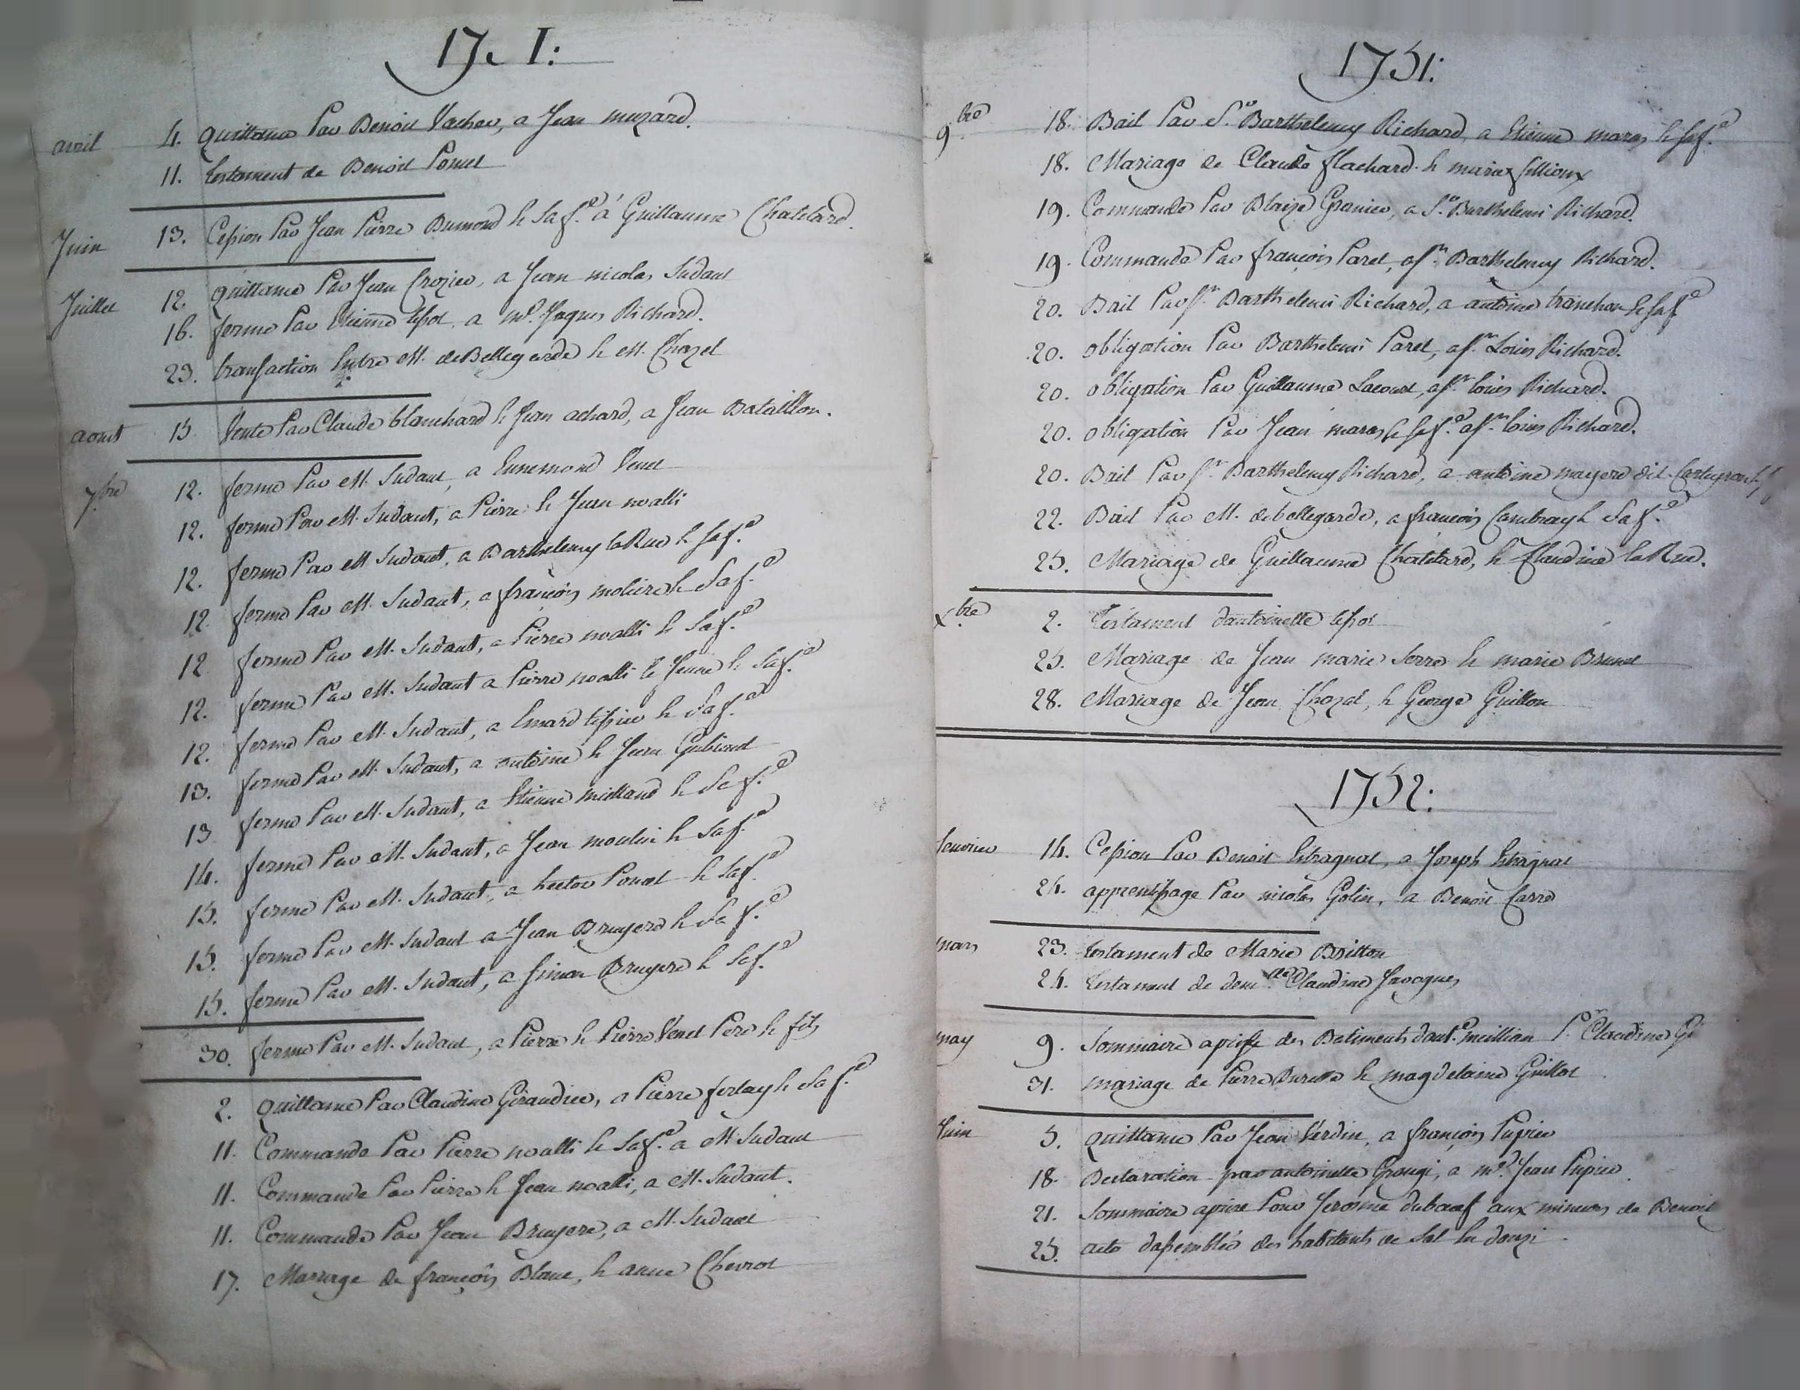 1751:
avril 4. quittance Par Benoit Vacher, a Jean muzard.
11. testament de Benoit Ponut
Juin 13. Cession Par Jean Pierre Dumond & sa f.e à Guillaume Chatelard.
Juillet 12. quittance Par Jean Crozier, a Jean nicolas Sudant
16. ferme Par Etienne tissot, a mr. Jaques Richard.
23. transaction Entre M. de Bellegarde & M. Chazel
aoust 15 Vente Par Claude blanchard & Jean achard, a Jean Bataillon.
7.bre 12. ferme Par M. Sudant, a Ennemond Venet
12. ferme Par M. Sudant, a Pierre & Jean noalli
12. ferme Par M. Sudant, a Barthelemy la Rue & sa f.e
12 ferme Par M. Sudant, a françois moliere & sa f.e
12 ferme Par M. Sudant, a Pierre noalli & sa f.e
12. ferme Par M. Sudant a Pierre noalli le Jeune & sa f.e
12. ferme Par M. Sudant, a & sa f.e
13. ferme Par M. Sudant, a antoine & Jean
13 ferme Par M. Sudant, a Etienne milland & sa f.e
14. ferme Par M. Sudant, a Jean moulin & sa f.e
15. ferme Par M. Sudant, a hector Ponot & sa f.e
15. ferme Par M. Sudant a Jean Bruyere & sa f.e
15. ferme Par M. Sudant, a Simon Bruyere & sa f.e
30. ferme Par M. Sudant, a Pierre & Pierre Venet Pere & fils
2. quittance Par Claudine Giraudier, a Pierre ferlay & sa f.e
11. Commande Par Pierre noalli & sa f.e a M. Sudant
11. Commande Par Pierre & Jean noalli, a M. Sudant.
11. Commande Par Jean Bruyere, a M. Sudant
17. Mariage de françois Blanc, & anne Chevrot
1751:
9.bre 18. Bail Par S.r Barthelemy Richard, a Etienne maras & sa f.e
18. Mariage de Claude flachard & marie fillioux
19. Commande Par Blaize Granier, a S.r Barthelemi Richard.
19. Commande Par françois Paret, a s.r Barthelemy Richard.
20. Bail Par s.r Barthelemi Richard, a antoine tranchan & sa f.e
20. obligation Par Barthelemi Paret, a s.r Louis Richard.
20. obligation Par Guillaume Lacourt, a s.r louis Richard.
20. obligation Par Jean maras & sa f.e a s.r louis Richard.
20. Bail Par s.r Barthelemy Richard, a antoine mayere dit
22. Bail Par M. de bellegarde, a françois Cambray & sa f.e
25. Mariage de Guillaume Chatelard, & Claudine la Rue.
X.bre 2. testament dantoinette tissot
25. Mariage de Jean marie Serre & marie Brunet
28. Mariage de Jean Chazal, & George Guillon
1752:
Janvier 14. Cession Par Benoit Estragnat, a Joseph Estragnat
24. apprentissage Par nicolas Golin, a Benoit Carre
mars 23. testament de Marie Britton
24. testament de dem.lle Claudine Javogues
may 9. Sommaire aprise des Batiments dant.e meillian P.r Claudine
31. mariage de Pierre & magdelaine Guillot
Juin 5. quittance Par Jean Verdin, a françois Pupier
18. Declaration par antoinette Grougi, a mr. Jean Pupier.
21. Sommaire aprise Pour Jerosme duboeuf aux mineurs de Benoit
25. acte d'assemblée des habitants de Sal En donzi